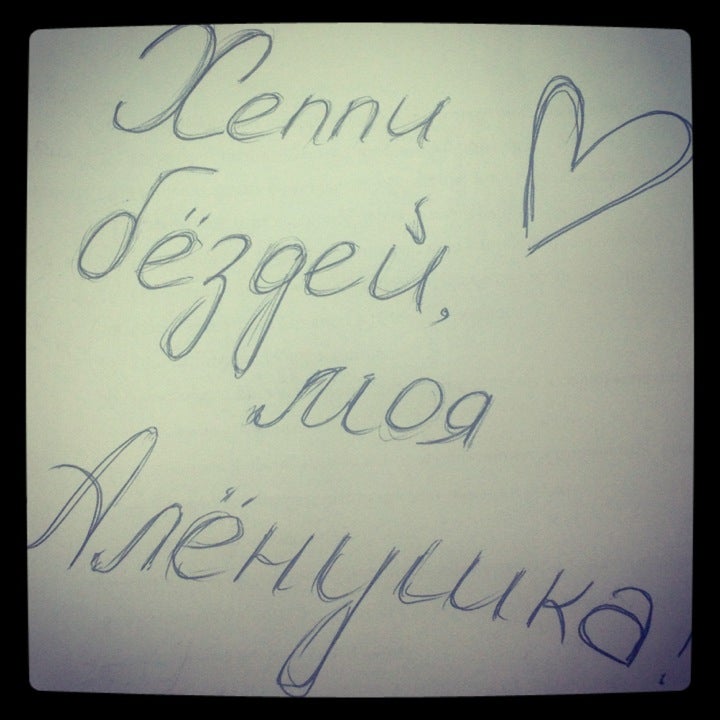 Хеппи
бёздей,
моя
Алёнушка!